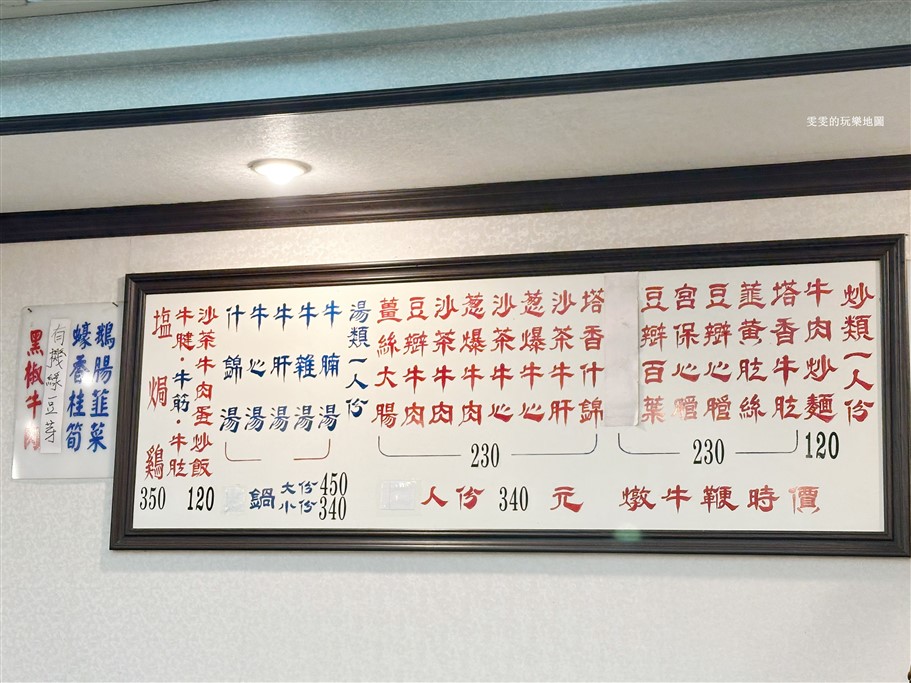 雯雯的玩樂地圖
炒類一人份
牛肉炒麵
120
塔香牛肚
韮黄肚絲
豆瓣心膛
宮保心膛
豆瓣百葉
230
塔香什錦
沙茶牛肝
葱爆牛心
沙茶牛心
葱爆牛肉
沙茶牛肉
豆瓣牛肉
薑絲大腸
230
湯類一人份
牛腩湯
牛雜湯
牛肝湯
牛心湯
什錦湯
沙茶牛肉蛋炒飯
120
牛腱·牛筋·牛肚
塩焗鷄
350
鍋 大份450
小份340
人份 340 元
燉牛鞭時價
鵝腸韮菜
蠔香桂筍
有機綠豆芽
黑椒牛肉